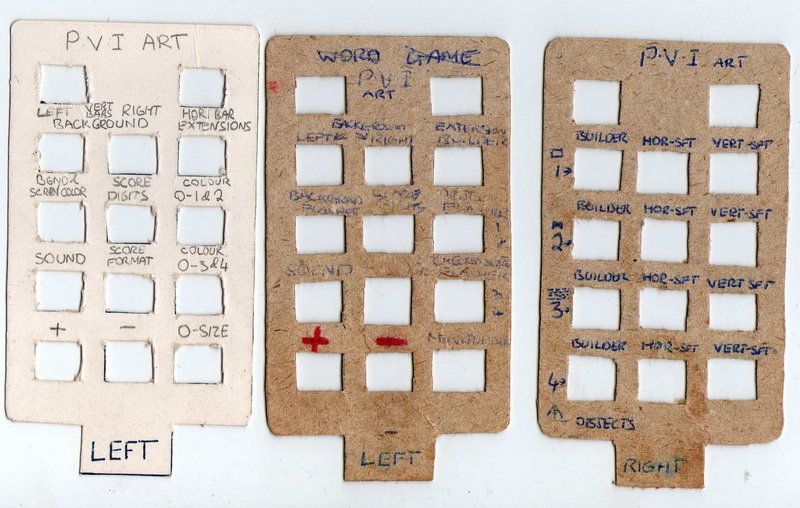 P.V.I ART
LEFT VERT BARS RIGHT
BACKGROUND
HORI BAR
EXTENSIONS
BGND &
SCREEN COLOR
SCORE
DIGITS
COLOUR
O-1&2
SOUND
SCORE
FORMAT
COLOUR
O-3&4
+ - O-SIZE
LEFT
WORD GAME
P.V.I
ART
BACKGROUND
LEFT RIGHT
EXTENSION
BUILDER
SOUND
+ -
-
LEFT
P.V.I ART
BUILDER HOR-SFT VERT-SFT
1
BUILDER HOR-SFT VERT-SFT
2
BUILDER HOR-SFT VERT SFT
3
BUILDER HOR-SFT VERT-SFT
4
OBJECTS
RIGHT